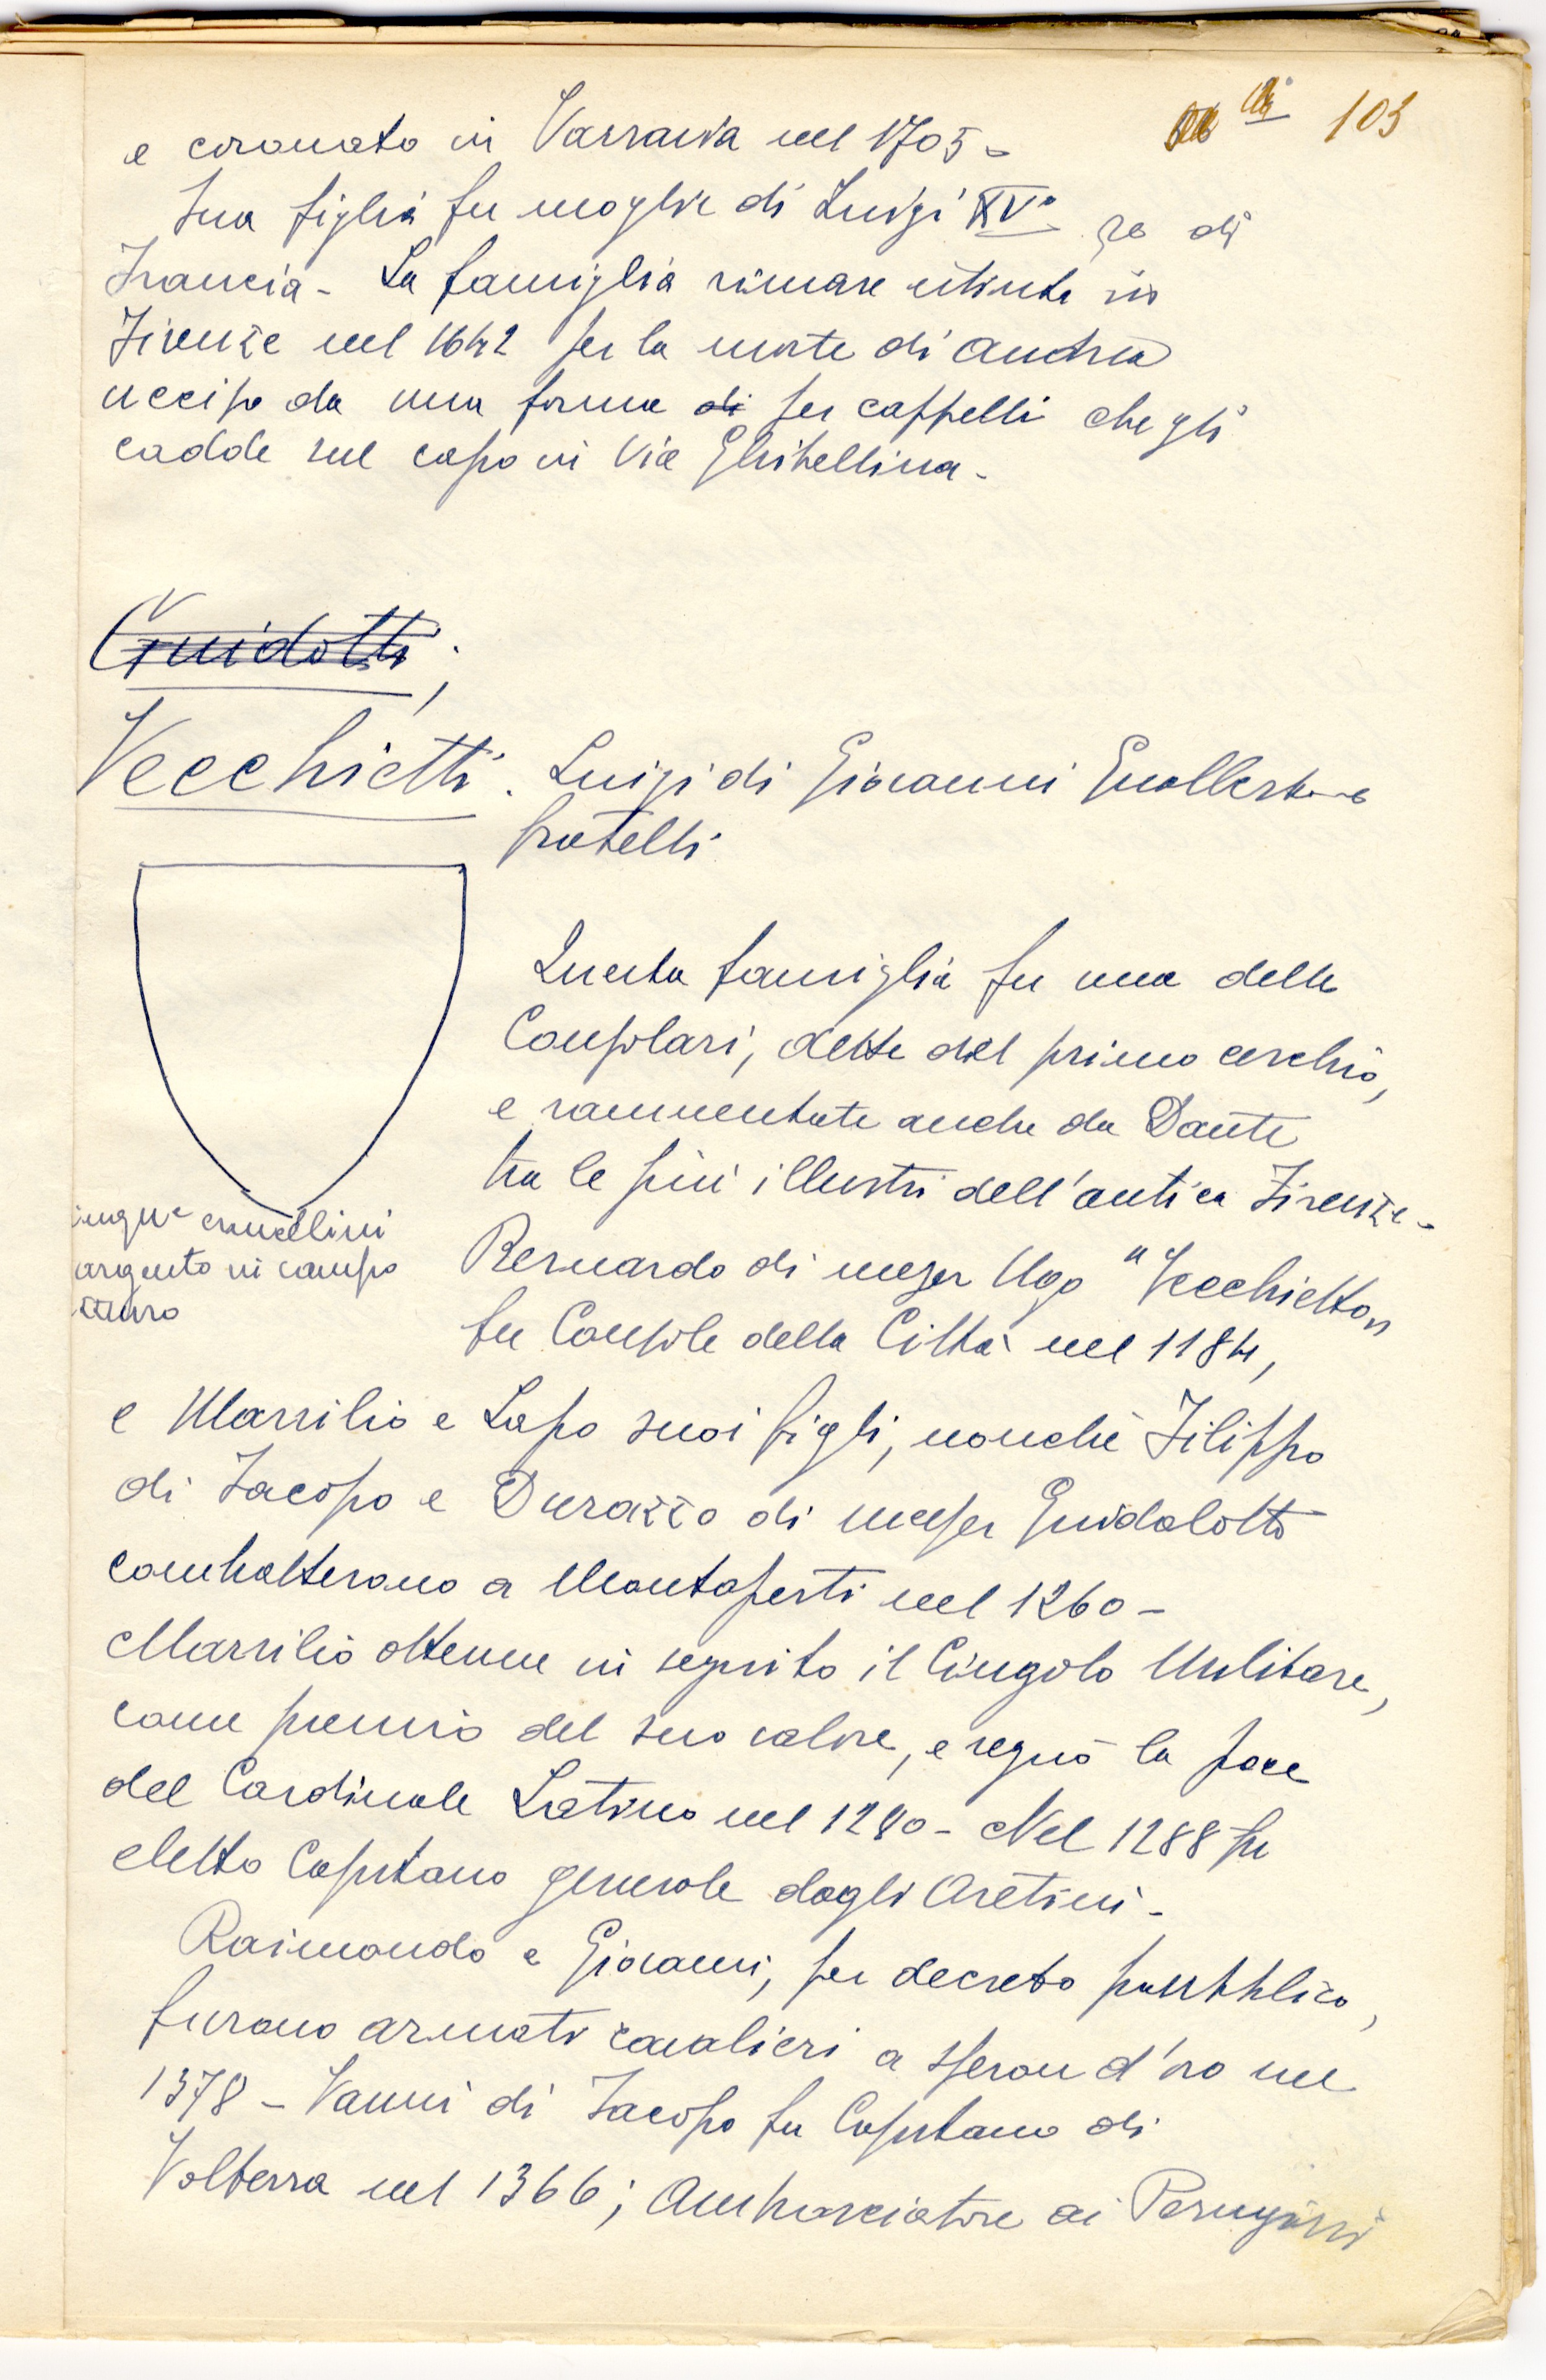 103
e coronato in Varsavia nel 1705 -
Sua figlia fu moglie di Luigi XV° re di
Francia - La famiglia rimase estinta in
Firenze nel 1642 per la morte di Andrea
ucciso da una forma di per cappelli che gli
cadde sul capo in Via Ghibellina -
Guidotti,
Vecchietti. Luigi di Giovanni Gualberto e
fratelli
Questa famiglia fu una delle
Consolari, dette del primo cerchio,
e rammentate anche da Dante
tra le più illustri dell'antica Firenze -
Bernardo di messer Ugo "Vecchietto"
fu Console della Città nel 1184,
argento in campo
e Marsilio e Lapo suoi figli, nonchè Filippo
di Jacopo e Durazzo di messer Guidalotto
combatterono a Montaperti nel 1260 -
Marsilio ottenne in seguito il Cingolo Militare,
come premio del suo valore, e segnò la pace
del Cardinale Latino nel 1280 - Nel 1288 fu
eletto Capitano generale dagli Aretini -
Raimondo e Giovanni, per decreto pubblico,
furono armati cavalieri a speron d'oro nel
1378 - Vanni di Jacopo fu Capitano di
Volterra nel 1366; Ambasciatore ai Perugini